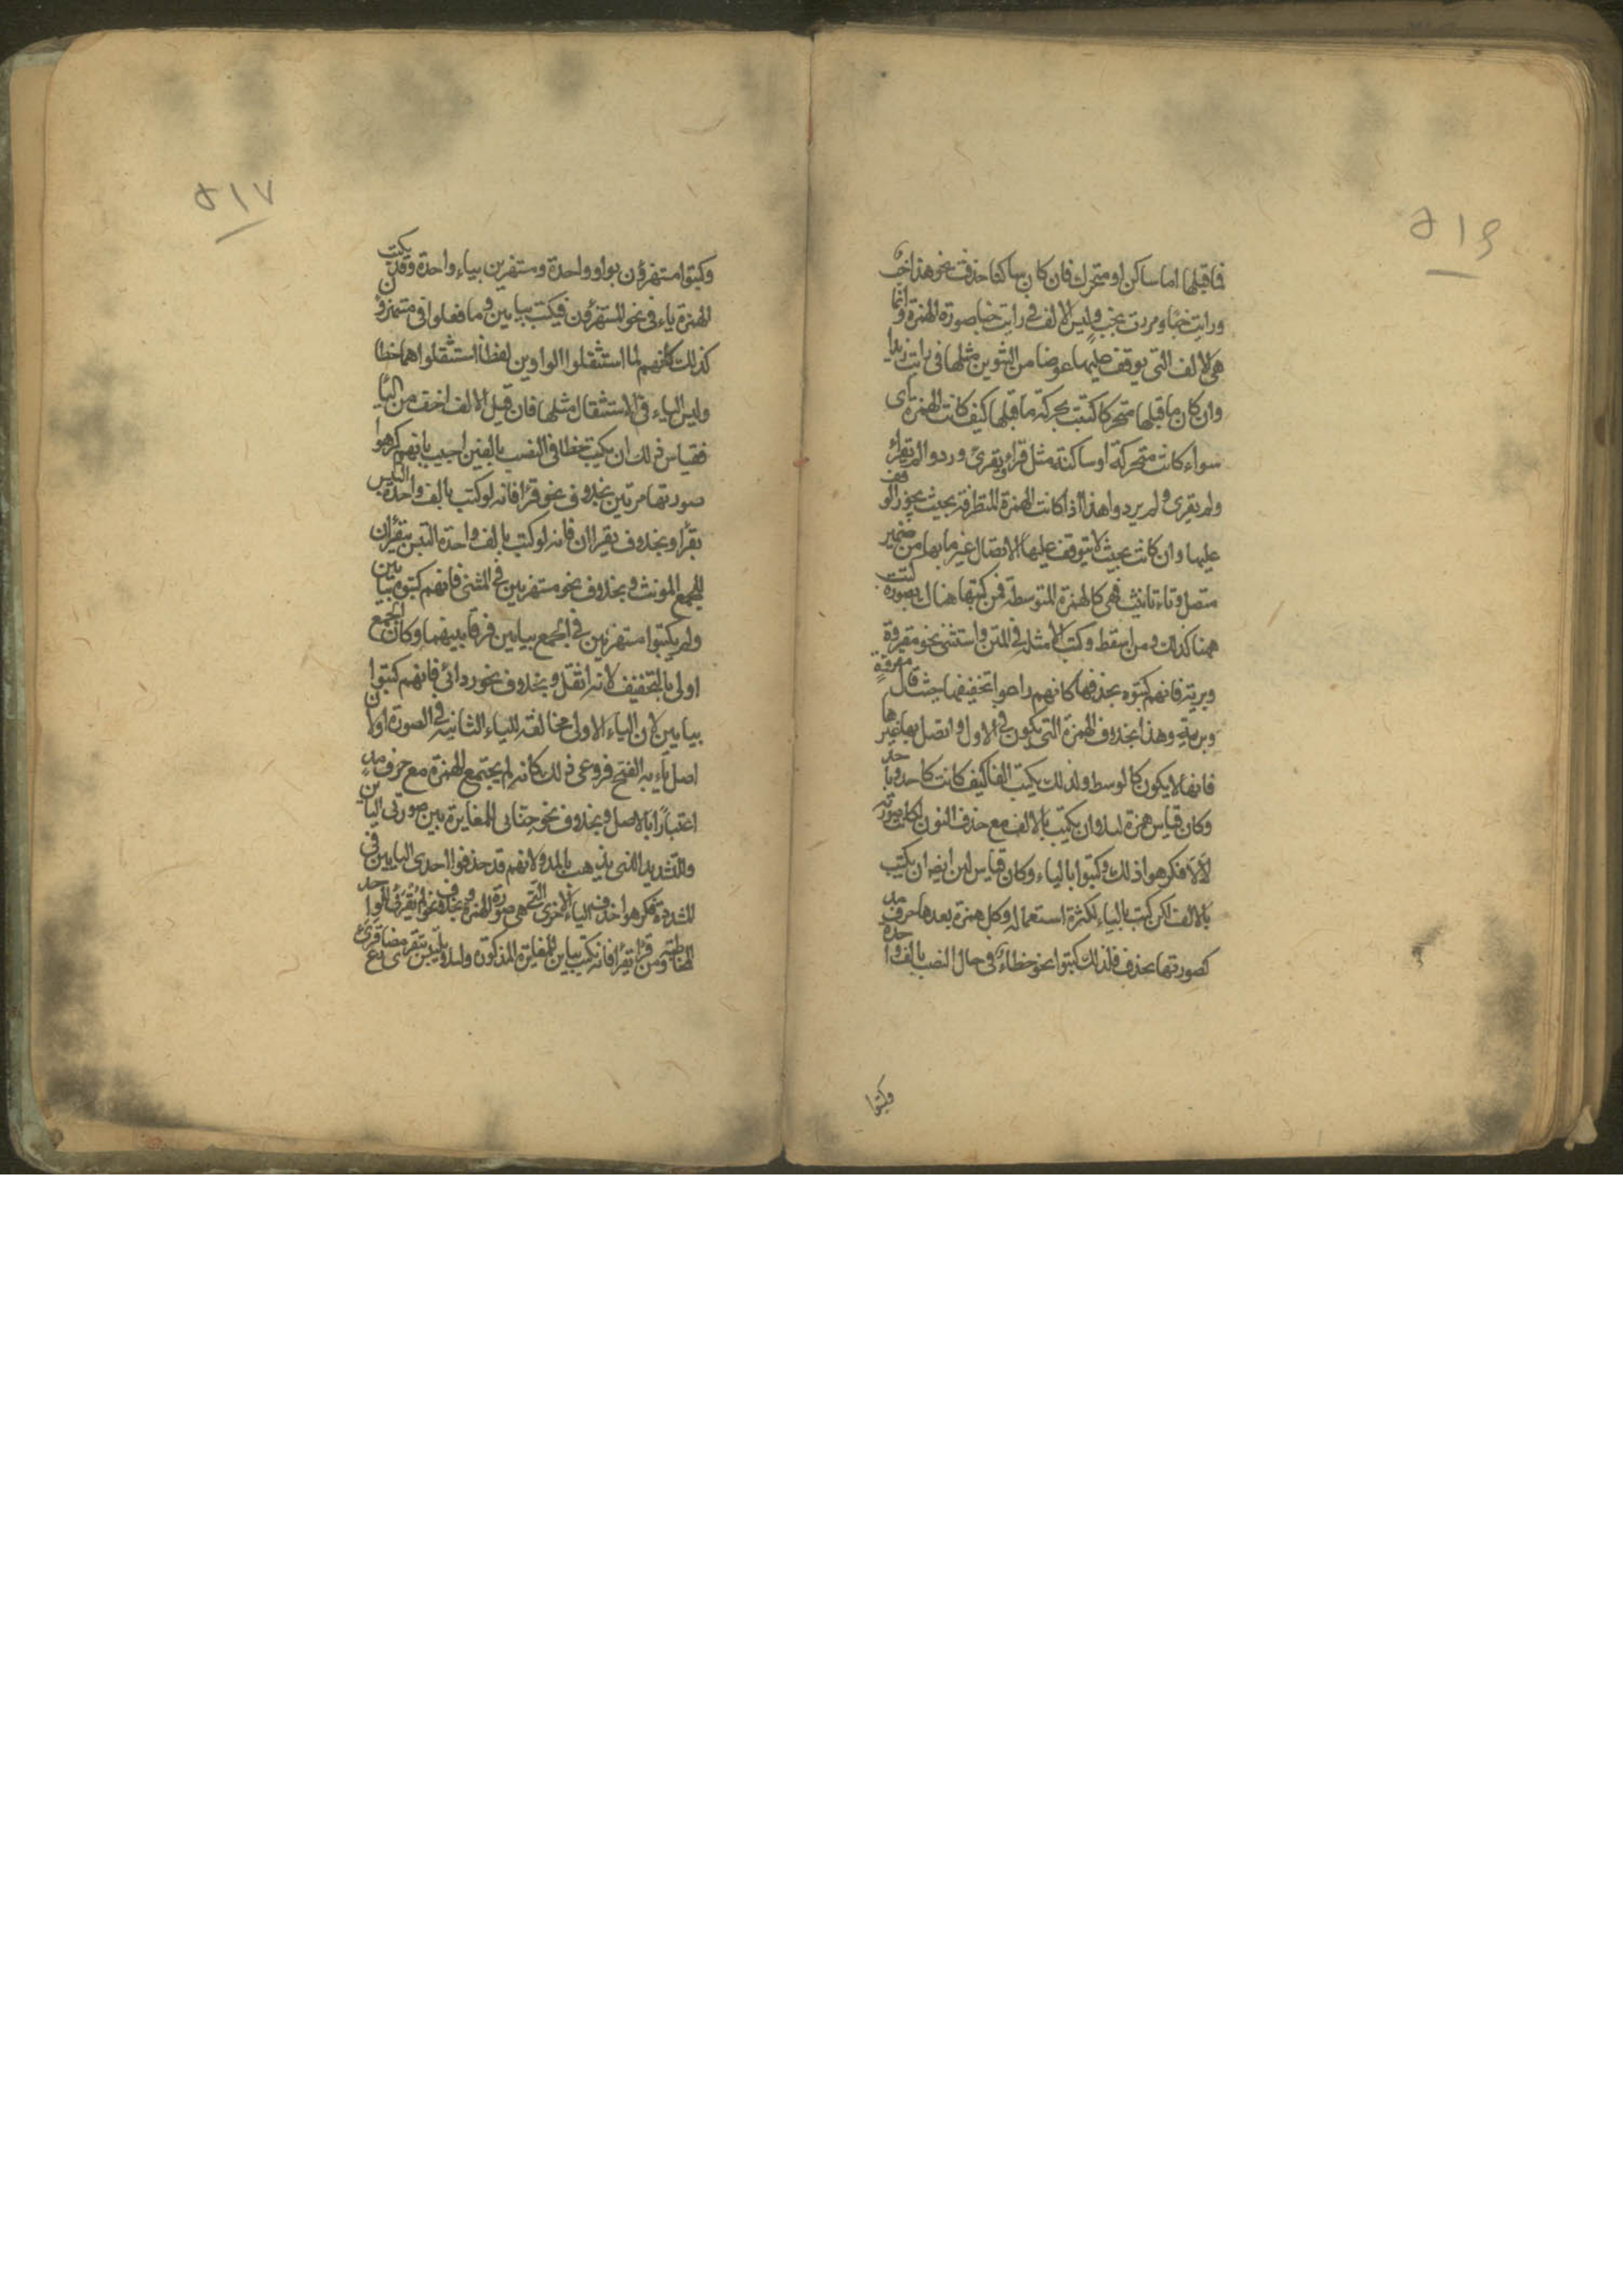 ٥١٦
فما قبلها اما ساكن او متحرك فان كان ساكنا حذفت نحو هذا خبْ
ورايت خبًا ومررت بخب وليس الالف في رايت خبا صورة الهمزة وانما
هي الالف التي يوقف عليها عوضا من التنوين مثلها في رايت زيدا
وان كان ما قبلها متحركا كتبت بحركة ما قبلها كيف كانت الهمزة اى
سواء كانت متحركة او ساكنة مثل قرأ ويقرئ وردو ولم يقرأ
ولم يقرى ولم يردو وهذا اذا كانت الهمزة المتطرفة بحيث يجوز الوقف
عليها وان كانت بحيث لا يتوقف عليها لاتصال غيرها بها من ضمير
متصل وتاء تانيث فهي كالهمزة المتوسطة فمن كتبها هناك بصورة كتبت
همنا كذلك ومن اسقط وكتب الامثلة في المتن واستثنى نحو مقروة
وبرية فانهم كتبوه بحذفها كانهم راعوا تخفيفها حيث قال مقروّة
وبريّةٍ وهذا بخلاف الهمزة التي يكون في الاول واتصل بها غيرها
فانها لا يكون كالوسط ولذلك يكتب الفا كيف كانت كاحد وباحد
وكان قياس همزة لئلا وان يكتب بالالف مع حذف النون لكان صورته
لألا فكرهوا ذلك وكتبوا بالياء وكان قياس لئن ايضا ان يكتب
بالالف لكن كتب بالياء لكثرة استعماله وكل همزة بعدها حرف مد
كصورتها بحذف فلذلك كتبوا نحو خطاءً في حال النصب بالف واحدة
وكتبوا
٥١٧
وكتبوا مستهزؤن بواو واحدة ومستهزين بياء واحدة وقد يكتب
الهمزة ياء في نحو المستهزؤن فيكتب بيايين وما فعلوا في مستهزؤن
كذلك كانهم لما استثقلوا الواوين لفظا استثقلوا هما خطا
وليس الياء في الاستثقال مثلها فان قيل الالف اخف من الياء
فقياس ذلك ان يكتب خطا في النصب بالفين اجيب بانهم كرهوا
صورتها مرتين بخلاف نحو قرأا فانه لو كتب بالف واحدة التبس
بقرأ وبخلاف يقراان فانه لو كتب بالف واحدة التبس بيقرأن
للجمع المونث وبخلاف نحو مستهزيين في المثنى فانهم كتبوه بيايين
ولم يكتبوا مستهزيين في الجمع بيايين فرقا بينهما وكان الجمع
اولى بالتخفيف لانه اثقل وبخلاف نحو ردائى فانهم كتبوا
بيايين لان الياء الاولى مخالفة للياء الثانية في الصورة اولان
اصل ياءيه الفتح فروعى ذلك كانه لم يجتمع الهمزة مع حرف مد
اعتبارًا بالاصل وبخلاف نحو حنائى للمغايرة بين صورتى اليائين
والتشديد الذى يذهب بالمد ولانهم قد حذفوا احدى اليايين في
المشددة فكرهوا حذف الياء الاخرى التي هي صورة الهمزة وبخلاف نحو لم تقرئى للواحدة
المخاطبة ومن قرأ يقرأ فانه يكتب بيايين للمغايرة المذكورة ولئلا يلتبس